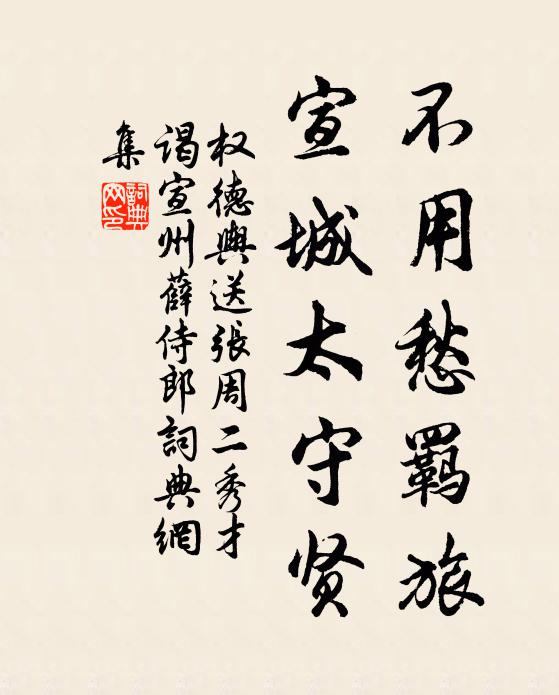 不用愁羁旅
宣城太守贤
权德舆送張周二秀才
谒宣州薛侍郎詞典網
集
詞典
网印